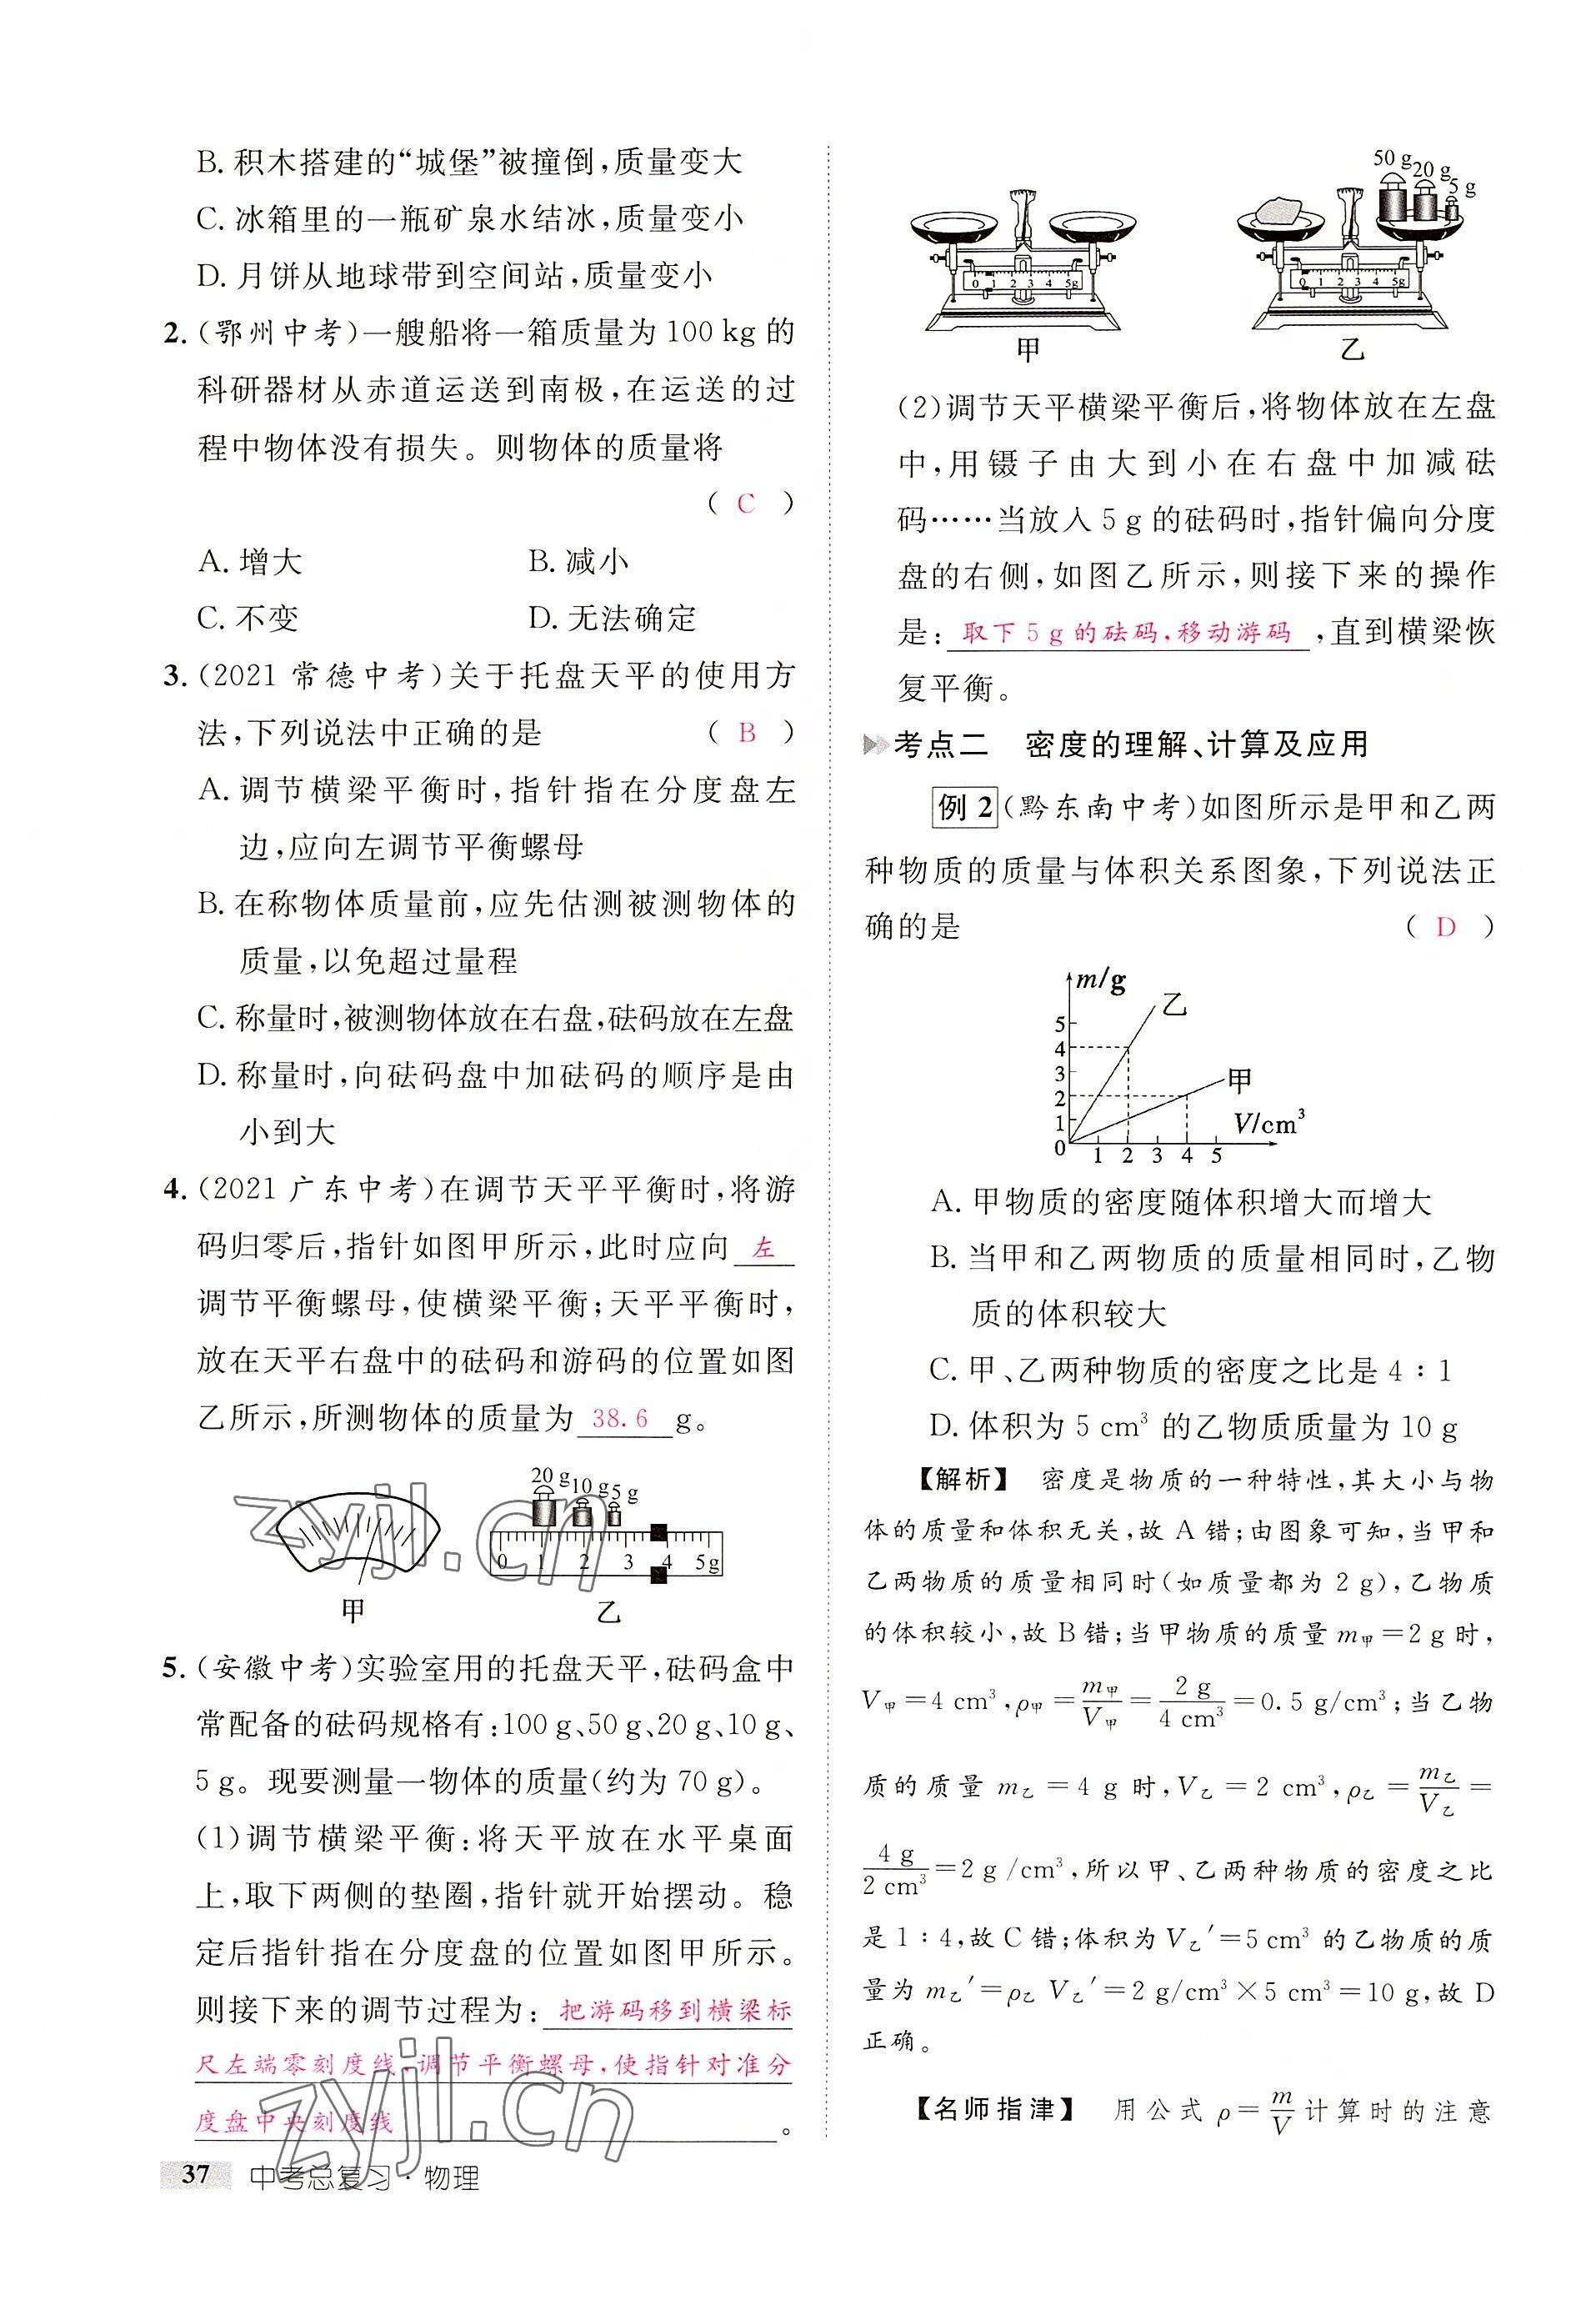 B. 积木搭建的“城堡”被撞倒,质量变大
C. 冰箱里的一瓶矿泉水结冰,质量变小
D. 月饼从地球带到空间站,质量变小
2. (鄂州中考)一艘船将一箱质量为 100 kg 的
科研器材从赤道运送到南极,在运送的过
程中物体没有损失。则物体的质量将
( C )
A. 增大 B. 减小
C. 不变 D. 无法确定
3. (2021 常德中考)关于托盘天平的使用方
法,下列说法中正确的是 ( B )
A. 调节横梁平衡时,指针指在分度盘左
边,应向左调节平衡螺母
B. 在称物体质量前,应先估测被测物体的
质量,以免超过量程
C. 称量时,被测物体放在右盘,砝码放在左盘
D. 称量时,向砝码盘中加砝码的顺序是由
小到大
4. (2021 广东中考)在调节天平平衡时,将游
码归零后,指针如图甲所示,此时应向 左
调节平衡螺母,使横梁平衡;天平平衡时,
放在天平右盘中的砝码和游码的位置如图
乙所示,所测物体的质量为 38.6 g。
20 g 10 g 5 g
0 1 2 3 4 5g
甲 乙
zyjl.cn
5. (安徽中考)实验室用的托盘天平,砝码盒中
常配备的砝码规格有:100 g、50 g、20 g、10 g、
5 g。现要测量一物体的质量(约为 70 g)。
(1)调节横梁平衡:将天平放在水平桌面
上,取下两侧的垫圈,指针就开始摆动。稳
定后指针指在分度盘的位置如图甲所示。
则接下来的调节过程为: 把游码移到横梁标
尺左端零刻度线,调节平衡螺母,使指针对准分
度盘中央刻度线 。
zyjl.cn
37 中考总复习·物理
50 g 20 g 5 g
0 1 2 3 4 5g 0 1 2 3 4 5g
甲 乙
(2)调节天平横梁平衡后,将物体放在左盘
中,用镊子由大到小在右盘中加减砝
码……当放入 5 g 的砝码时,指针偏向分度
盘的右侧,如图乙所示,则接下来的操作
是: 取下 5 g 的砝码,移动游码 ,直到横梁恢
复平衡。
考点二 密度的理解、计算及应用
例 2 (黔东南中考)如图所示是甲和乙两
种物质的质量与体积关系图象,下列说法正
确的是 ( D )
m/g
乙
5
4
3
2
1
0
甲
V/cm³
1 2 3 4 5
A. 甲物质的密度随体积增大而增大
B. 当甲和乙两物质的质量相同时,乙物
质的体积较大
C. 甲、乙两种物质的密度之比是 4∶1
D. 体积为 5 cm³ 的乙物质质量为 10 g
【解析】 密度是物质的一种特性,其大小与物
体的质量和体积无关,故 A 错;由图象可知,当甲和
乙两物质的质量相同时(如质量都为 2 g),乙物质
的体积较小,故 B 错;当甲物质的质量 m甲=2 g 时,
V甲=4 cm³,ρ甲=m甲/V甲=2 g/4 cm³=0.5 g/cm³;当乙物
质的质量 m乙=4 g 时,V乙=2 cm³,ρ乙=m乙/V乙=
4 g/2 cm³=2 g/cm³,所以甲、乙两种物质的密度之比
是 1∶4,故 C 错;体积为 V乙′=5 cm³ 的乙物质的质
量为 m乙′=ρ乙 V乙′=2 g/cm³×5 cm³=10 g,故 D
正确。
【名师指津】 用公式 ρ=m/V 计算时的注意